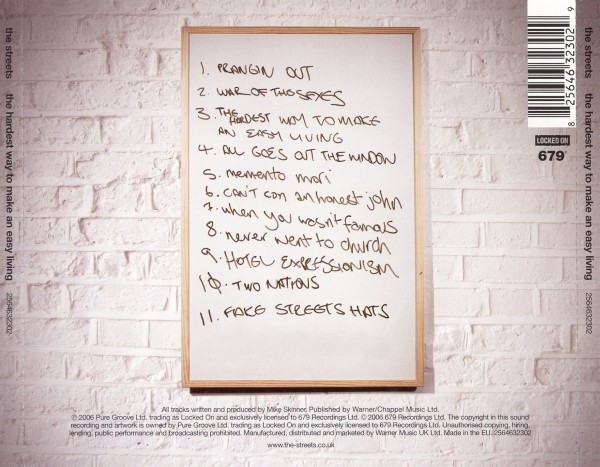 the streets the hardest way to make an easy living 2564632302
1. PRANGIN OUT
2. WAR OF THE SEXES
3. THE HARDEST WAY TO MAKE
AN EASY LIVING
4. ALL GOES OUT THE WINDOW
5. memento mori
6. can't con an honest john
7. when you wasn't famous
8. never went to church
9. HOTEL EXPRESSIONISM
10. TWO NATIONS
11. FAKE STREETS HATS
8 25646 32302 9
LOCKED ON
679
the streets the hardest way to make an easy living 2564632302
All tracks written and produced by Mike Skinner. Published by Warner/Chappel Music Ltd.
℗ 2006 Pure Groove Ltd. trading as Locked On and exclusively licensed to 679 Recordings Ltd. © 2006 679 Recordings Ltd. The copyright in this sound
recording and artwork is owned by Pure Groove Ltd. trading as Locked On and exclusively licensed to 679 Recordings Ltd. Unauthorised copying, hiring,
lending, public performance and broadcasting prohibited. Manufactured, distributed and marketed by Warner Music UK Ltd. Made in the EU. 2564632302
www.the-streets.co.uk